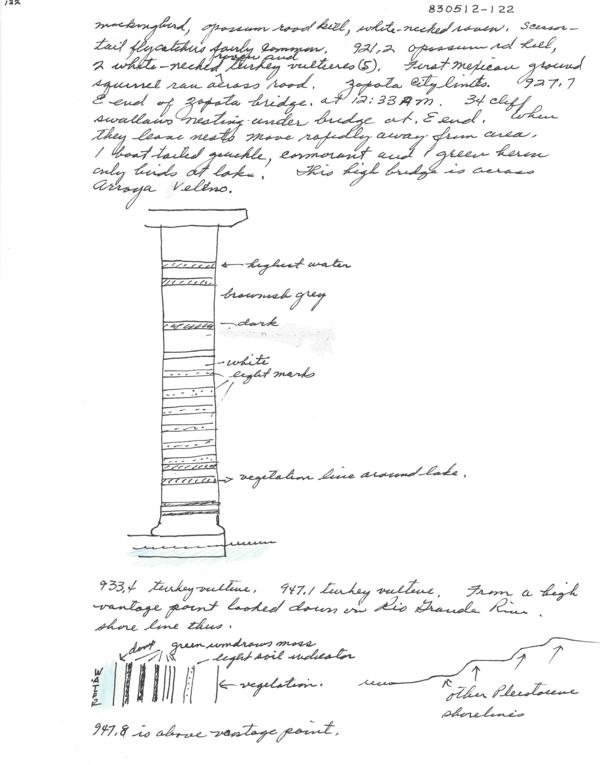 122
830512-122
mockingbird, opossum road kill, white-necked raven. Scissor-
tail flycatchers fairly common. 921.2 opossum rd kill,
2 white-necked raven and turkey vultures (5). First Mexican ground
squirrel ran across road. Zapata City limits. 927.7
E end of Zapata bridge. at 12:33 PM. 34 cliff
swallows nesting under bridge at E end. When
they leave nests move rapidly away from area.
1 boat-tailed grackle, cormorant and 1 green heron
only birds at lake. This high bridge is across
Arroya Veleno.
highest water
brownish grey
dark
white
light marks
vegetation line around lake.
933.4 turkey vulture. 947.1 turkey vulture. From a high
vantage point looked down on Rio Grande River.
shore line thus.
green windrows moss
light soil indicator
vegetation.
other Pleistocene
shorelines
947.8 is above vantage point.